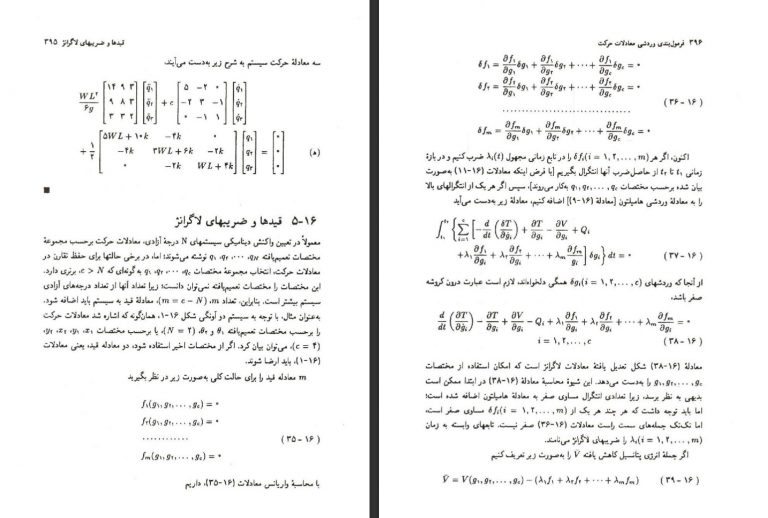 قیدها و ضریبهای لاگرانژ ۳۹۵
سه معادلهٔ حرکت سیستم به شرح زیر به‌دست می‌آیند،
■
۵-۱۶ قیدها و ضریبهای لاگرانژ
معمولاً در تعیین واکنش دینامیکی سیستمهای N درجهٔ آزادی، معادلات حرکت برحسب مجموعهٔ
مختصات تعمیم‌یافته q₁, q₂, ..., q_N نوشته می‌شوند؛ اما، در برخی حالتها برای حفظ تقارن در
معادلات حرکت، انتخاب مجموعهٔ مختصات g₁, g₂, ..., g_c به گونه‌ای که c > N، برتری دارد.
این مختصات را مختصات تعمیم‌یافته نمی‌توان دانست؛ زیرا تعداد آنها از تعداد درجه‌های آزادی
سیستم بیشتر است. بنابراین، تعداد m، (m = c − N)، معادلهٔ قید به سیستم باید اضافه شود.
به‌عنوان مثال، با توجه به سیستم دو آونگی شکل ۱۶-۱، همان‌گونه که اشاره شد معادلات حرکت
را برحسب مختصات تعمیم‌یافته θ₁ و θ₂، (N = ۲)، یا برحسب مختصات x₁، y₁، x₂، y₂،
(c = ۴)، می‌توان بیان کرد. اگر از مختصات اخیر استفاده شود، دو معادله قید، یعنی معادلات
(۱۶-۱)، باید ارضا شوند.
m معادله قید را برای حالت کلی به‌صورت زیر در نظر بگیرید
f₁(g₁, g₂, ..., g_c) = ۰
f₂(g₁, g₂, ..., g_c) = ۰
............
(۱۶-۳۵)
f_m(g₁, g₂, ..., g_c) = ۰
با محاسبهٔ واریانس معادلات (۱۶-۳۵)، داریم
۳۹۶ فرمول‌بندی وردشی معادلات حرکت
δf₁ = ∂f₁/∂g₁ δg₁ + ∂f₁/∂g₂ δg₂ + ··· + ∂f₁/∂g_c δg_c = ۰
δf₂ = ∂f₂/∂g₁ δg₁ + ∂f₂/∂g₂ δg₂ + ··· + ∂f₂/∂g_c δg_c = ۰
(۱۶-۳۶)
............
δf_m = ∂f_m/∂g₁ δg₁ + ∂f_m/∂g₂ δg₂ + ··· + ∂f_m/∂g_c δg_c = ۰
اکنون، اگر هر δf_i (i = ۱, ۲, ..., m) را در تابع زمانی مجهول λ_i(t) ضرب کنیم و در بازهٔ
زمانی t₁ تا t₂ از حاصل‌ضرب آنها انتگرال بگیریم [با فرض اینکه معادلات (۱۶-۱۱) به‌صورت
بیان شده برحسب مختصات g₁, g₂, ..., g_c به‌کار می‌روند]، سپس اگر هر یک از انتگرالهای بالا
را به معادلهٔ وردشی هامیلتون [معادلهٔ (۱۶-۹)] اضافه کنیم، معادلهٔ زیر به‌دست می‌آید
(۱۶-۳۷)
از آنجا که وردشهای δg_i (i = ۱, ۲, ..., c) همگی دلخواه‌اند، لازم است عبارت درون کروشه
صفر باشد،
d/dt (∂T/∂ġ_i) − ∂T/∂g_i + ∂V/∂g_i − Q_i + λ₁ ∂f₁/∂g_i + λ₂ ∂f₂/∂g_i + ··· + λ_m ∂f_m/∂g_i = ۰
i = ۱, ۲, ..., c (۱۶-۳۸)
معادلهٔ (۱۶-۳۸) شکل تعدیل یافتهٔ معادلات لاگرانژ است که امکان استفاده از مختصات
g₁, g₂, ..., g_c را به‌دست می‌دهد. این شیوهٔ محاسبهٔ معادلهٔ (۱۶-۳۸) در ابتدا ممکن است
بدیهی به نظر برسد، زیرا تعدادی انتگرال مساوی صفر به معادلهٔ هامیلتون اضافه شده است؛
اما باید توجه داشت که هر چند هر یک از δf_i (i = ۱, ۲, ..., m) مساوی صفر است،
اما تک‌تک جمله‌های سمت راست معادلات (۱۶-۳۶) صفر نیست. تابعهای وابسته به زمان
λ_i (i = ۱, ۲, ..., m) را ضریبهای لاگرانژ می‌نامند.
اگر جملهٔ انرژی پتانسیل کاهش یافته V̄ را به‌صورت زیر تعریف کنیم
V̄ = V(g₁, g₂, ..., g_c) − (λ₁f₁ + λ₂f₂ + ··· + λ_m f_m) (۱۶-۳۹)